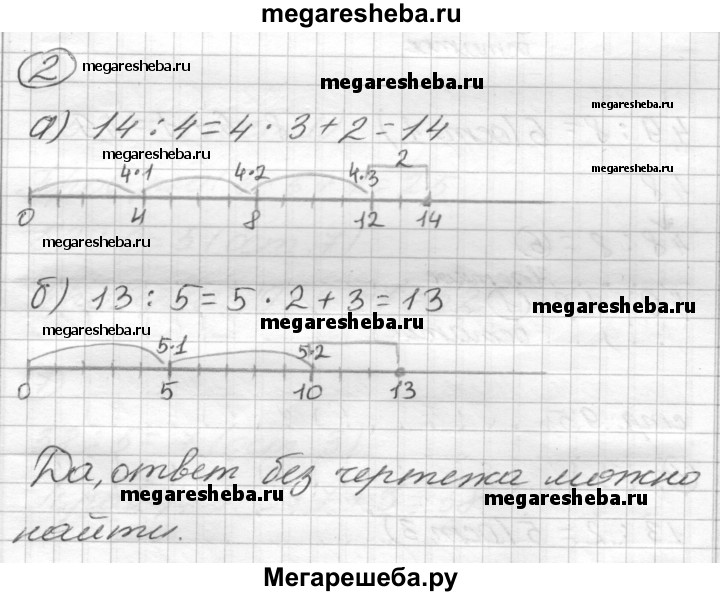 megaresheba.ru
2 megaresheba.ru
megaresheba.ru
а) 14 : 4 = 4 · 3 + 2 = 14
megaresheba.ru
megaresheba.ru
4·1 4·2 4·3 2
0 4 8 12 14
megaresheba.ru
б) 13 : 5 = 5 · 2 + 3 = 13
megaresheba.ru
megaresheba.ru
megaresheba.ru
5·1 5·2
0 5 10 13
Да, ответ без чертежа можно
megaresheba.ru
megaresheba.ru
найти.
Мегарешеба.ру